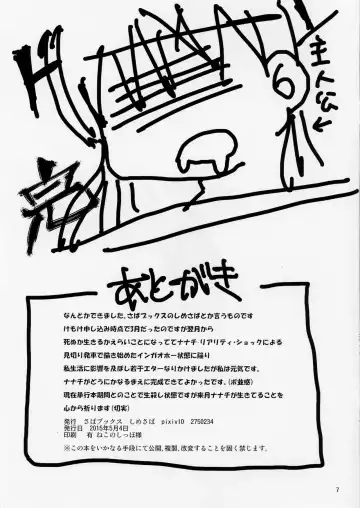 主人公
完
あとがき
なんとかできました、さばブックスのしめさばとか言うものです
けもけ申し込み時点で3月だったのですが翌月から
死ぬか生きるかえらいことになっててナナチ・リアリティ・ショックによる
見切り発車で描き始めたインガオホー状態に陥り
私生活に影響を及ぼし若干エターなりかけましたが私は元気です。
ナナチがどうにかなるまえに完成できてよかったです。(ボ並感)
現在承行本期間とのことで生殺し状態ですが来月ナナチが生きてることを
心から祈ります(切実)
発行　さばブックス　しめさば　pixivID　2750234
発行日　2015年5月4日
印刷　有 ねこのしっぽ様
※この本をいかなる手段にて公開,複製,改変することを固く禁じます。
7